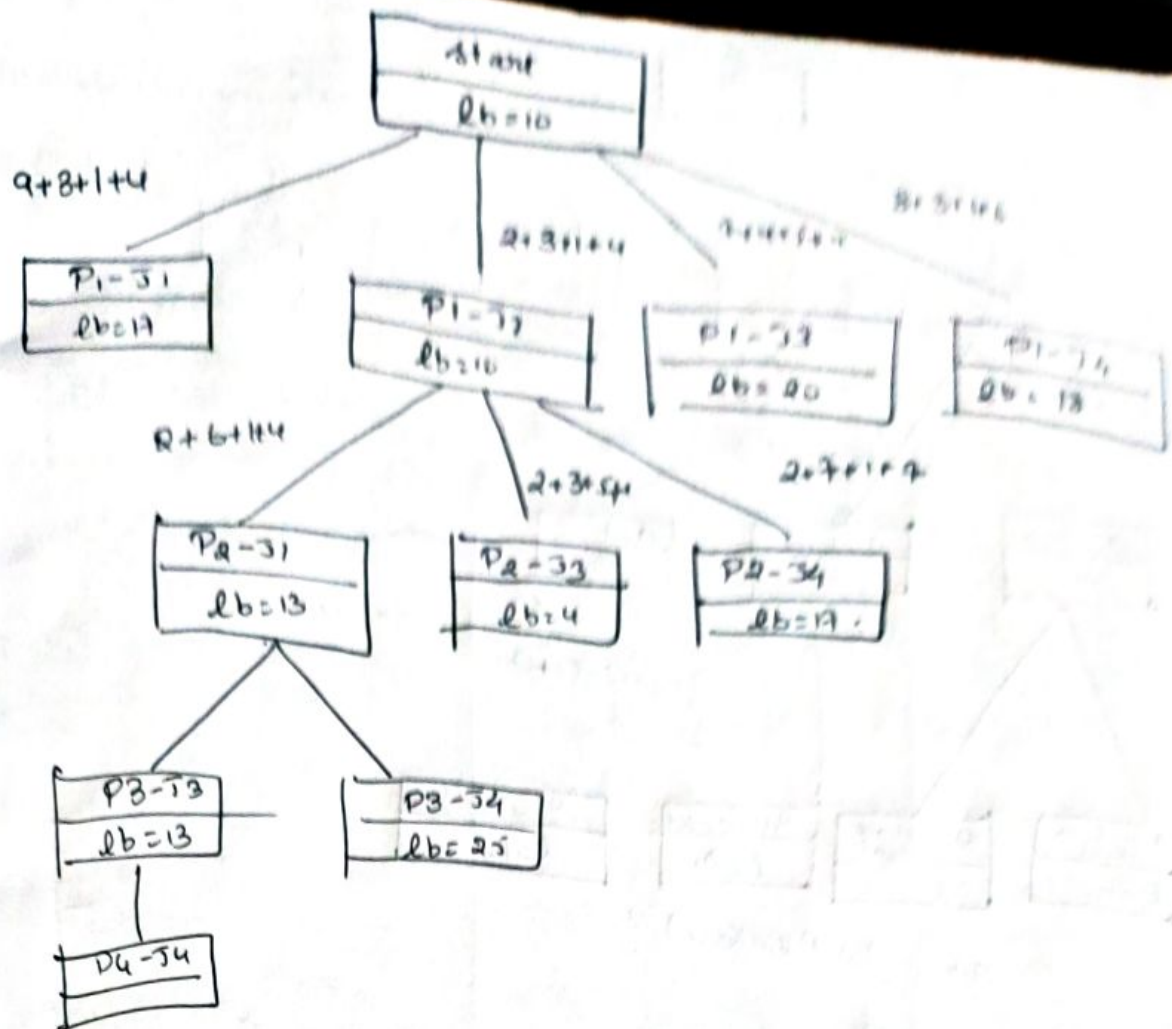 Start
lb=10
9+3+1+4
2+3+1+4
P1-J1
lb=17
P1-J2
lb=10
P1-J3
lb=20
P1-J4
lb=18
2+6+1+4
2+3+5+4
P2-J1
lb=13
P2-J3
lb=4
P2-J4
lb=17
P3-J3
lb=13
P3-J4
lb=25
P4-J4